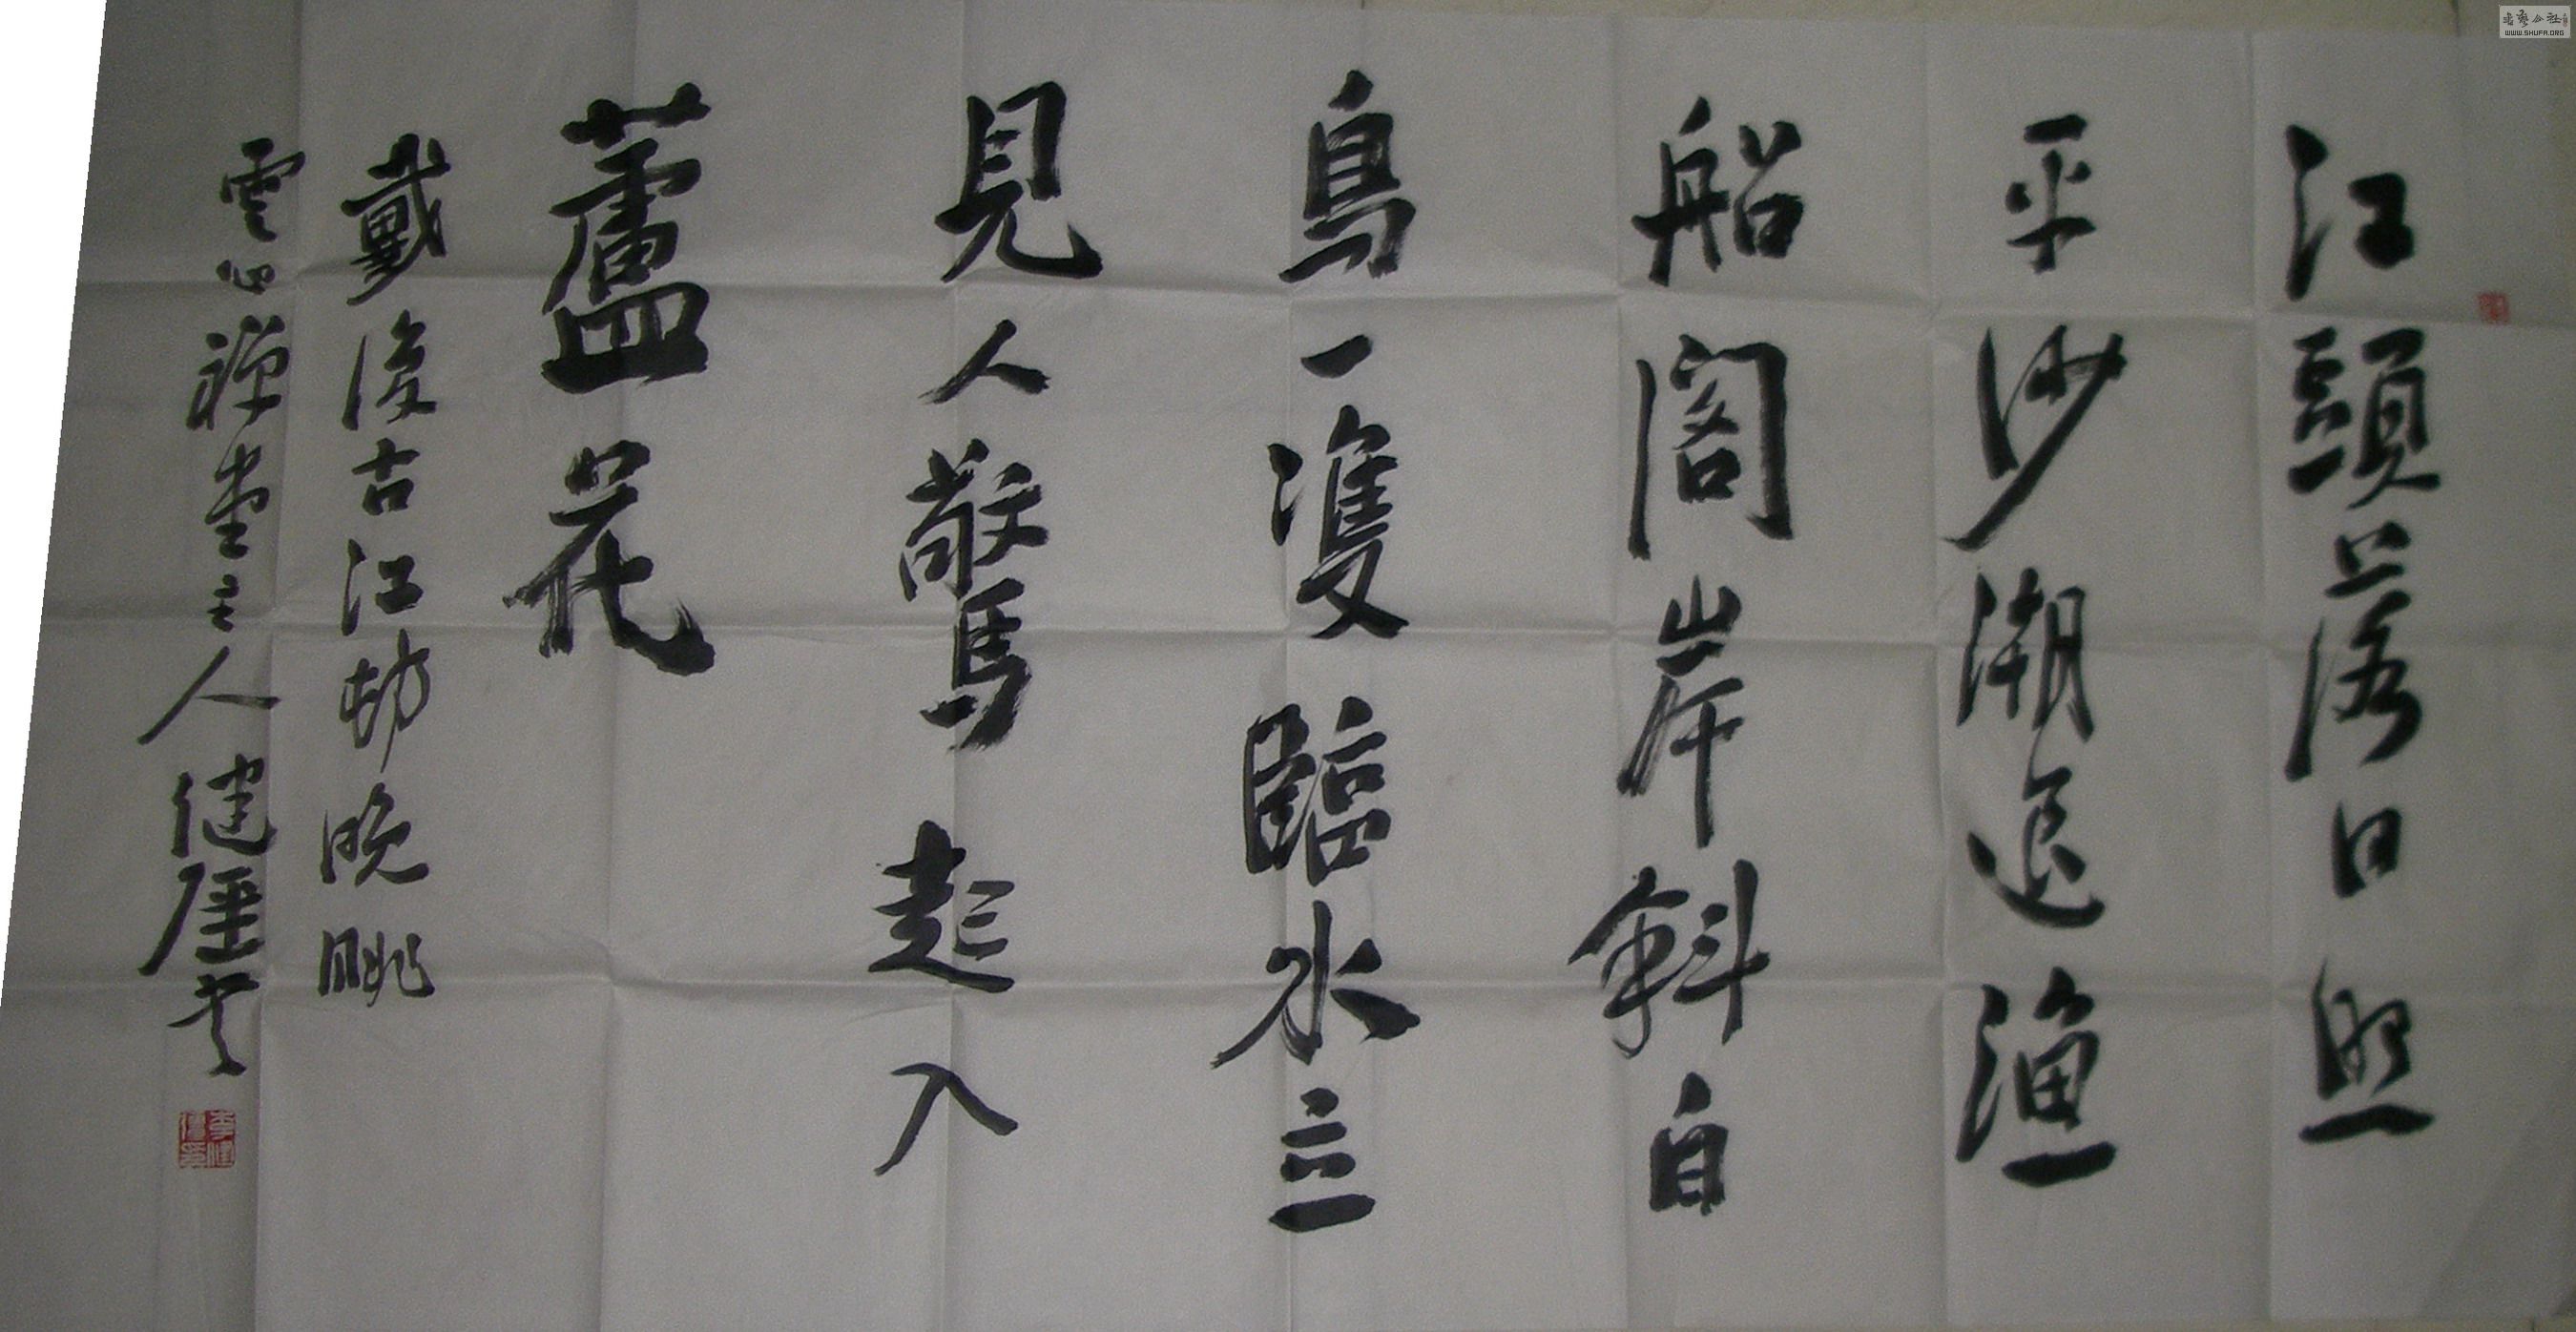 江頭落日照
平沙潮退漁
船閣岸斜白
鳥一雙臨水立
見人驚起入
蘆花
戴復古江村晚眺
雲心禪堂主人健
WWW.SHUFA.ORG